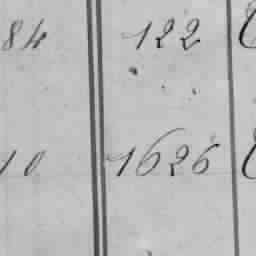 84 122
10 1626